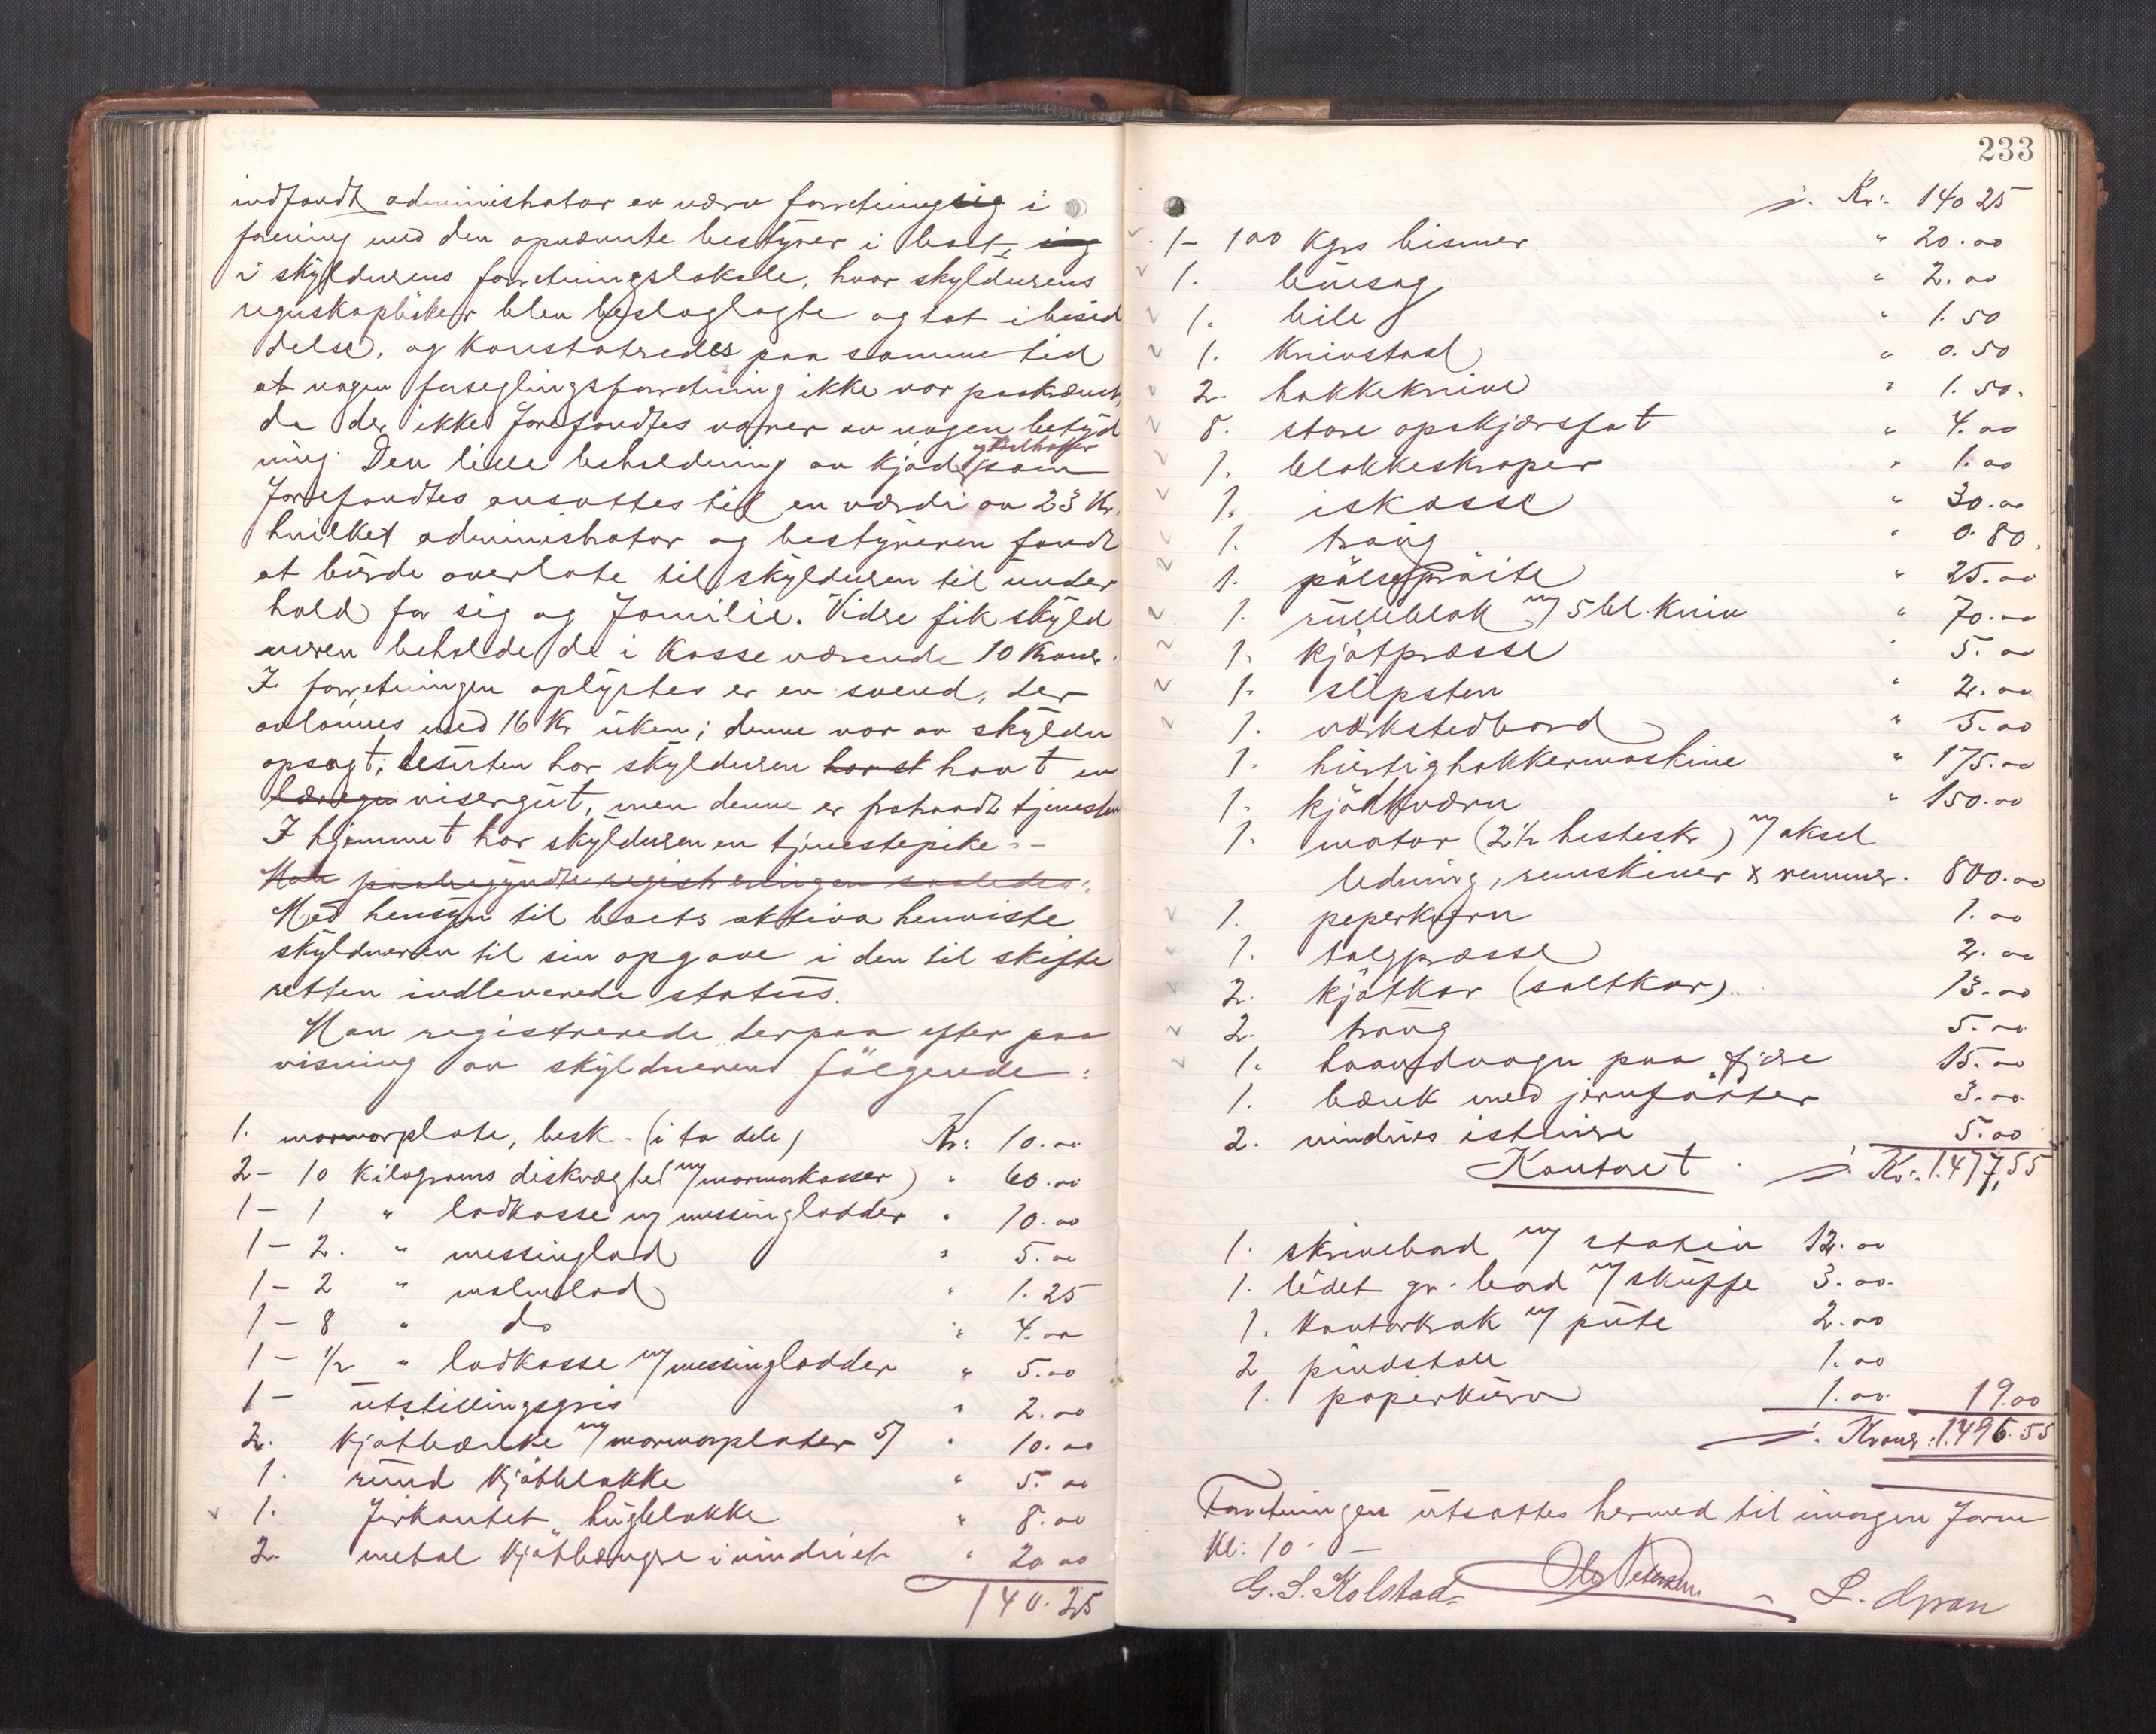 indfandt administrator av nærv forretning sig i
forening med den opnævnte bestyrer i boet, sig
i skyldnerens forretningslokale, hvor skyldnerens
regnskapsbøker blev beslaglagte og tat i besid
delse, og konstateredes paa samme tid
at nogen forseglingsforretning ikke var paakrævet,
da der ikke forefandtes varer av nogen betyd
ning. Den lille beholdning av kjød og som
forefandtes ansattes til en værdi av 23 Kr.
hvilket administrator og bestyreren fandt
at burde overlate til skyldneren til under
hold for sig og familie. Vidre fik skyld
neren beholde de i kasse værende 10 Kroner.
I forretningen oplystes er en svend, der
avlønnes med 16 Kr uken; denne var av skyldn
opsagt; desuten har skyldneren havt en
visergut, men denne er fratraadt tjenesten
I hjemmet har skyldneren en tjenestepike. -
Man paabegyndte registreringen saaledes:
Med hensyn til boets aktiva henviste
skyldneren til sin opgave i den til skifte
retten indleverede status.
Man registrerede derpaa efter paa
visning av skyldneren følgende:
1. marmorplate, besk. (i to dele) Kr: 10.00
2 - 10 kilograms diskvægter m/ marmorkasser) " 60.00
1 - 1 " lodkasse m/ messinglodder " 10.00
1 - 2. " messinglod " 5.00
1 - 2 " malmlod " 1.25
1 - 8 " do " 4.00
1 - 1/2 " lodkasse m/ messinglodder " 5.00
1 - utstillingsgris " 2.00
2. kjøtbænke m/ marmorplater 5/ " 10.00
1. rund kjøtblokke " 5.00
1. firkantet hugblokke " 8.00
2. metal kjøthængre i vinduet " 20 00
140.25
233
/. Kr: 140 25
1 - 100 Kgrs bismer " 20.00
1. buesag " 2.00
1. bile " 1.50
1. knivstaal " 0.50
2. hakkeknive " 1.50.
8. store opskjærsfat " 4.00
1. blokkeskraper " 1.00
1. iskasse " 30.00
1. traug " 0.80.
1. pølsesprøite " 25.00
1. rulleblok m/ 5 bl. kniv " 70.00
1. kjøtpresse " 5.00
1. slipsten " 2.00
1. værkstedbord " 5.00
1. hurtighakkermaskine " 175.00
1. kjødkværn " 150.00
1. motor (2 1/2 hestesk) m/ aksel
ledning, remskiver & remmer. 800.00
1. peperkværn 1.00
1. talgpresse 2.00
2. kjøtkar (saltkar) 13.00
2. traug 5.00
1. haandvogn paa fjære 15.00
1. bænk med jernføtter 3.00
2. vindues 5.00
Kontoret. /. Kr: 1.477,55
1. skrivebord m/ stativ 12.00
1. lidet gr. bord m/ skuffe 3.00.
1. kontorkrak m/ pute 2.00
2 pindstole 1.00
1. papirkurv 1.00 19.00
/. Kroner: 1.496.55
Forretningen utsattes hermed til imorgen form
Kl: 10. -
G. S. Kolstad Ole Petersen L. Gran